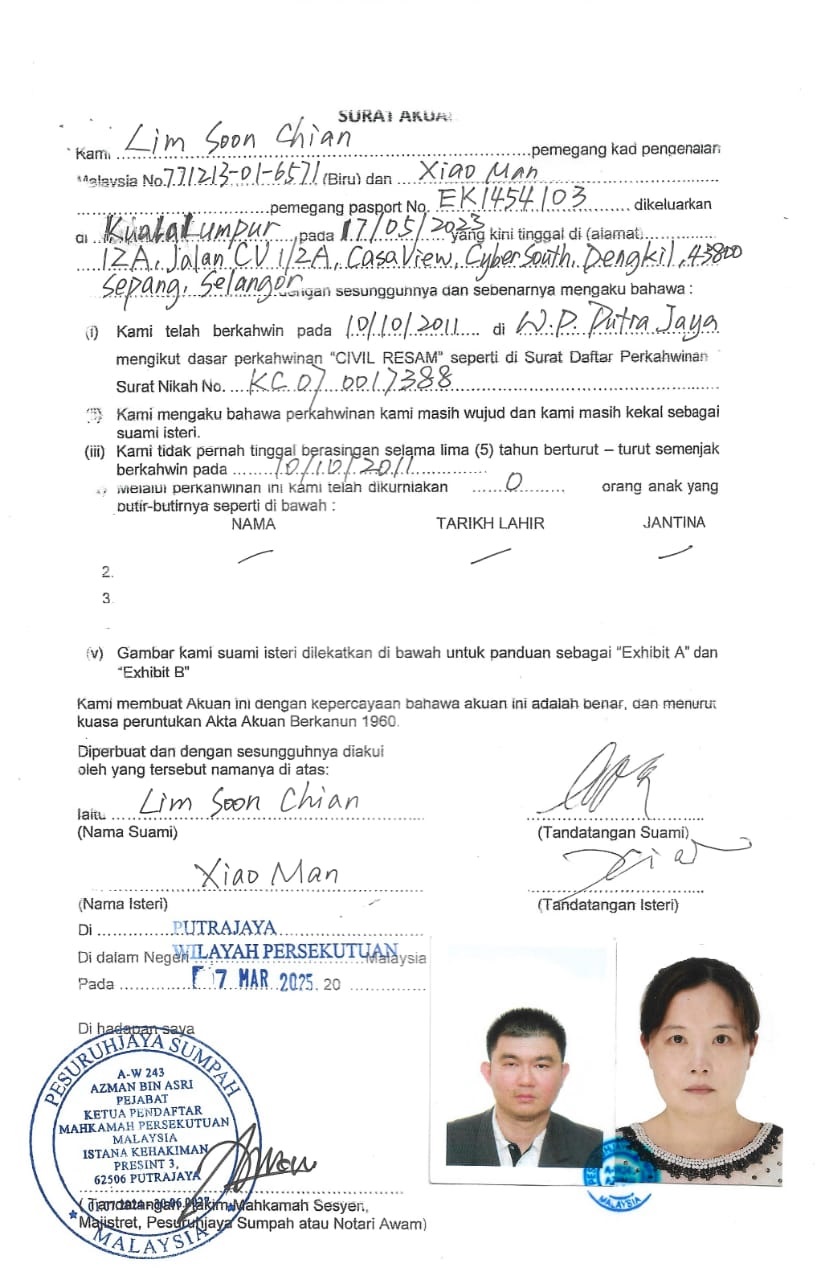 SURAT AKUA
Kami Lim Soon Chian pemegang kad pengenalan
Malaysia No. 771213-01-6571 (Biru) dan Xiao Man
pemegang pasport No. EK1454103 dikeluarkan
di Kuala Lumpur pada 17/05/2023 yang kini tinggal di (alamat)
12A, Jalan CV 1/2A, Casa View, Cyber South, Dengkil, 43800
Sepang, Selangor dengan sesungguhnya dan sebenarnya mengaku bahawa :
(i) Kami telah berkahwin pada 10/10/2011 di W.P. Putra Jaya
mengikut dasar perkahwinan “CIVIL RESAM” seperti di Surat Daftar Perkahwinan
Surat Nikah No. KC 07 0017388
(ii) Kami mengaku bahawa perkahwinan kami masih wujud dan kami masih kekal sebagai
suami isteri.
(iii) Kami tidak pernah tinggal berasingan selama lima (5) tahun berturut – turut semenjak
berkahwin pada 10/10/2011
Melalui perkahwinan ini kami telah dikurniakan 0 orang anak yang
butir-butirnya seperti di bawah :
NAMA TARIKH LAHIR JANTINA
2.
3.
(v) Gambar kami suami isteri dilekatkan di bawah untuk panduan sebagai “Exhibit A” dan
“Exhibit B”
Kami membuat Akuan ini dengan kepercayaan bahawa akuan ini adalah benar, dan menurut
kuasa peruntukan Akta Akuan Berkanun 1960.
Diperbuat dan dengan sesungguhnya diakui
oleh yang tersebut namanya di atas:
Iaitu Lim Soon Chian
(Nama Suami) (Tandatangan Suami)
Xiao Man
(Nama Isteri) (Tandatangan Isteri)
Di PUTRAJAYA
Di dalam Negeri WILAYAH PERSEKUTUAN Malaysia
Pada 07 MAR 2025 20
Di hadapan saya
PESURUHJAYA SUMPAH
A-W 243
AZMAN BIN ASRI
PEJABAT
KETUA PENDAFTAR
MAHKAMAH PERSEKUTUAN
MALAYSIA
ISTANA KEHAKIMAN
PRESINT 3,
62506 PUTRAJAYA
MALAYSIA
(Tandatangan Hakim Mahkamah Sesyen,
Majistret, Pesuruhjaya Sumpah atau Notari Awam)
MALAYSIA